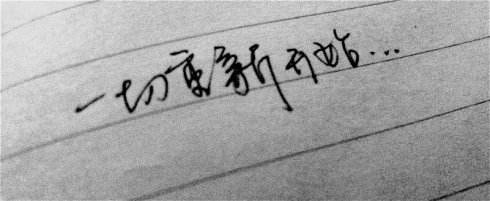 一切重新开始...